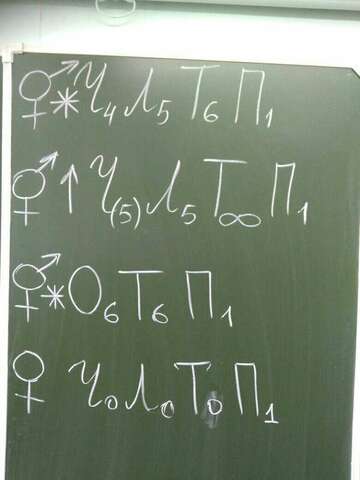 ⚥*Ч₄Л₅Т₆П₁
⚥↑Ч₍₅₎Л₅Т∞П₁
⚥*О₆Т₆П₁
♀Ч₀Л₀Т₀П₁